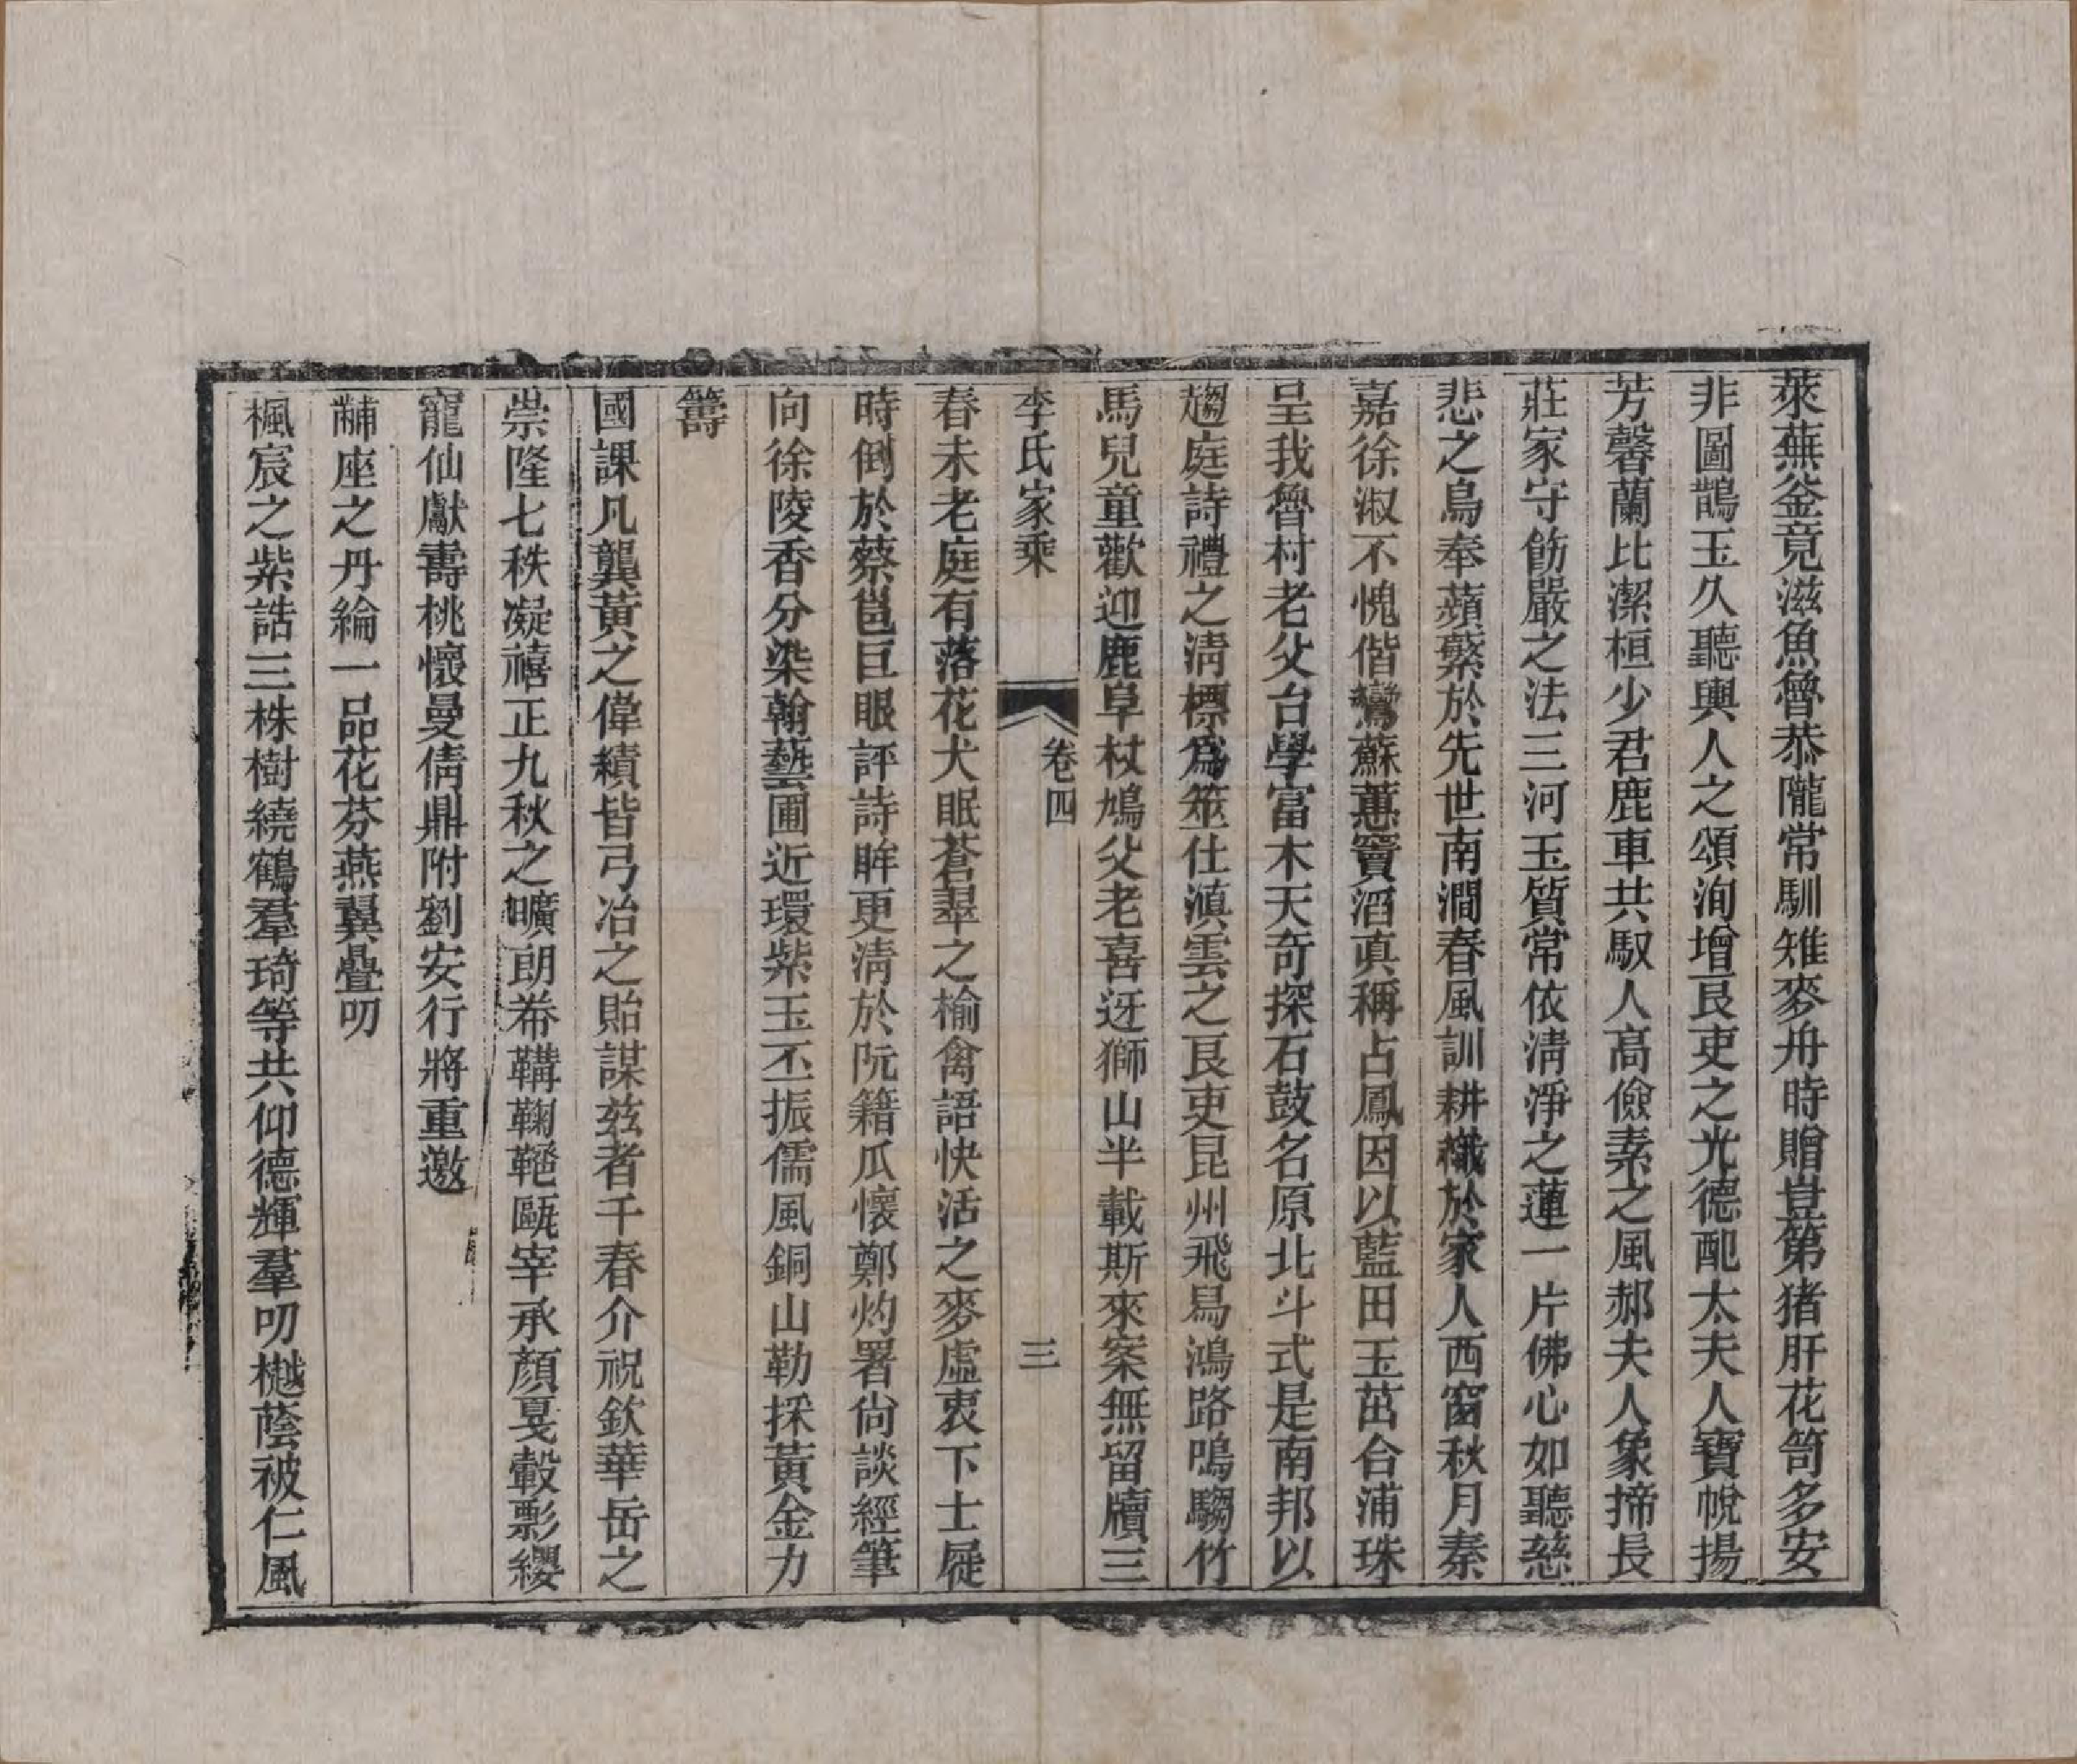 萊蕪釜竟滋魚魯恭隴常馴雉麥舟時贈豈第猪肝花笥多安
非圖鵲玉久聽輿人之頌洵增良吏之光德配太夫人寶帨揚
芳馨蘭比潔桓少君鹿車共馭人高儉素之風郝夫人象揥長
莊家守飭嚴之法三河玉質常依淸淨之蓮一片佛心如聽慈
悲之鳥奉蘋蘩於先世南澗春風訓耕織於家人西窗秋月秦
嘉徐淑不愧偕鸞蘇蕙竇滔眞稱占鳳因以藍田玉茁合浦珠
呈我魯村老父台學富木天奇探石鼓名原北斗式是南邦以
趨庭詩禮之淸標爲筮仕滇雲之良吏昆州飛舄鴻路鳴騶竹
馬兒童歡迎鹿阜杖鳩父老喜迓獅山半載斯來案無留牘三
李氏家乘
卷四
三
春未老庭有落花犬眠蒼翠之楡禽語快活之麥虛衷下士屣
時倒於蔡邕巨眼評詩眸更淸於阮籍瓜懷鄭灼署尙談經筆
向徐陵香分染翰藝圃近環紫玉丕振儒風銅山勒採黃金力
籌
國課凡龔黃之偉績皆弓冶之貽謀茲者千春介祝欽華岳之
崇隆七秩凝禧正九秋之曠朗帣韝鞠䠆甌宰承顏戛轂彯纓
寵仙獻壽桃懷曼倩鼎附劉安行將重邀
黼座之丹綸一品花芬燕翼疊叨
楓宸之紫誥三株樹繞鶴羣琦等共仰德輝羣叨樾蔭被仁風